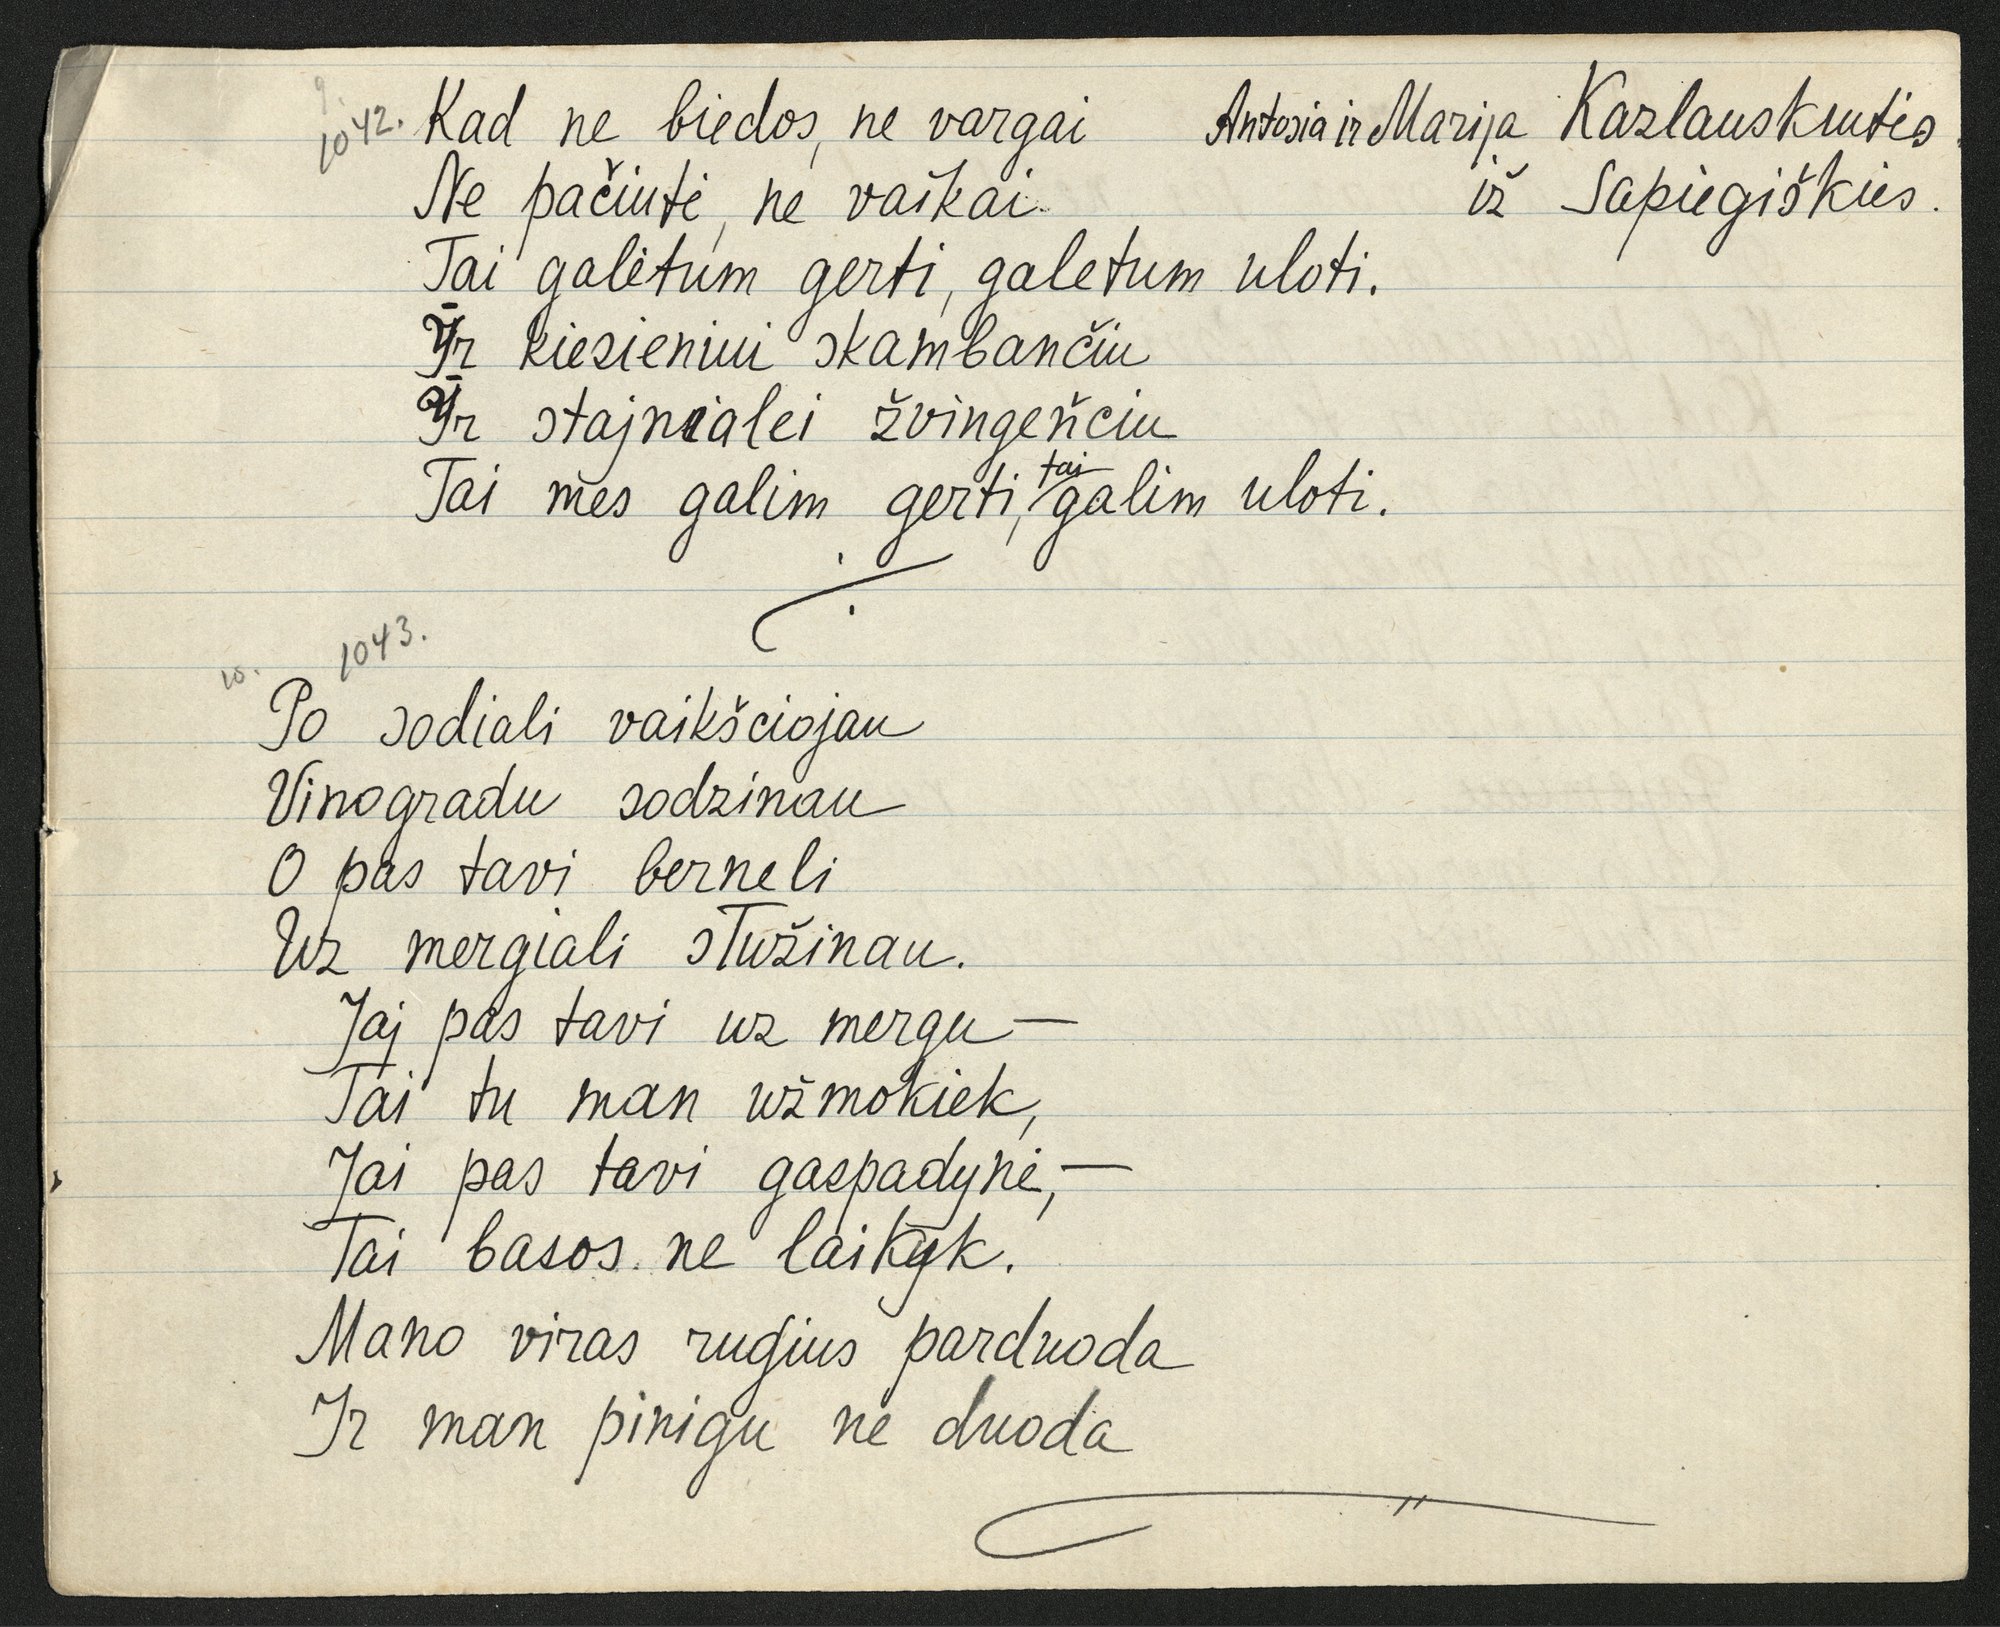 9.
1042. Kad ne biedos, ne vargai Antosia ir Marija Kazlauskutės
Ne pačiutė, ne vaikai iž Sapiegiškies.
Tai galėtum gerti, galetum uloti.
Yr kiesieniui skambančiu
Yr stajnialei žvingeńciu
Tai mes galim gerti, tai galim uloti.
10. 1043.
Po sodiali vaikšciojau
Vinogradu sodzinau
O pas tavi berneli
Uz mergiali stužinau.
Jaj pas tavi uz mergu —
Tai tu man užmokiek,
Jai pas tavi gaspadynė, —
Tai basos ne laikyk.
Mano viras rugius parduoda
Ir man pinigu ne duoda